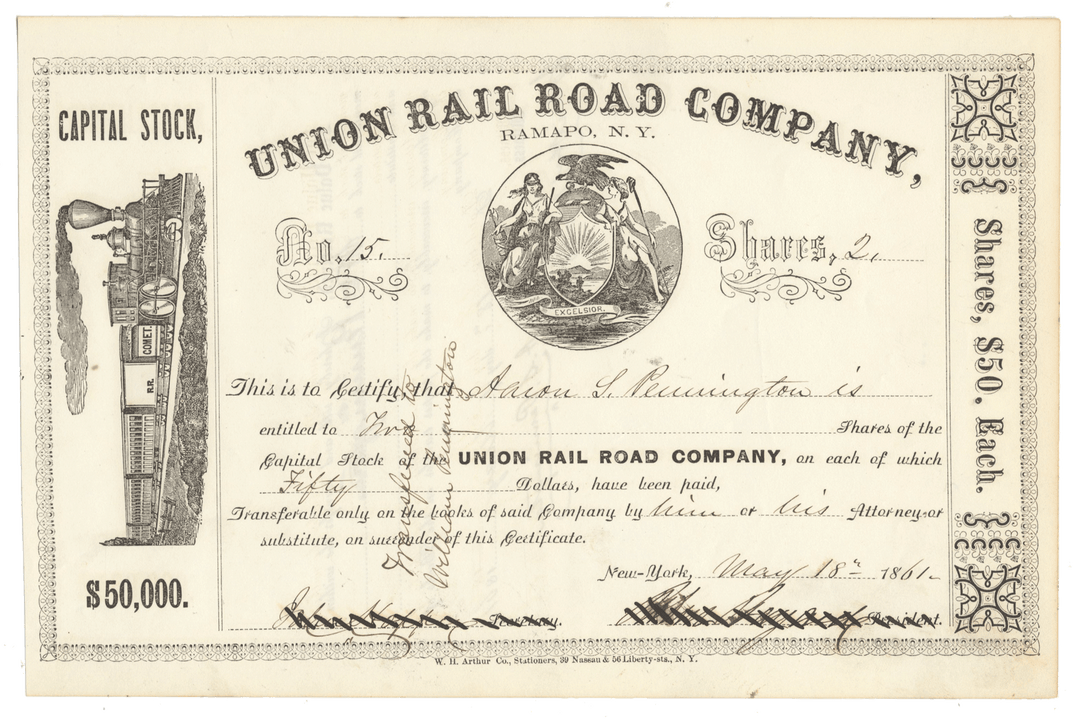 CAPITAL STOCK,
COMET.
R.R.
$50,000.
UNION RAIL ROAD COMPANY,
RAMAPO, N.Y.
No. 15.
EXCELSIOR.
Shares, 2.
This is to Certify, that Aaron S. Pennington is
entitled to Two Shares of the
Capital Stock of the UNION RAIL ROAD COMPANY, on each of which
Fifty Dollars, have been paid,
Transferable only on the books of said Company by him or his Attorney or
substitute, on surrender of this Certificate.
New-York, May 18th 1861
President.
Transferred to
William Pennington
W. H. Arthur Co., Stationers, 39 Nassau & 56 Liberty-sts., N. Y.
Shares, $50, Each.